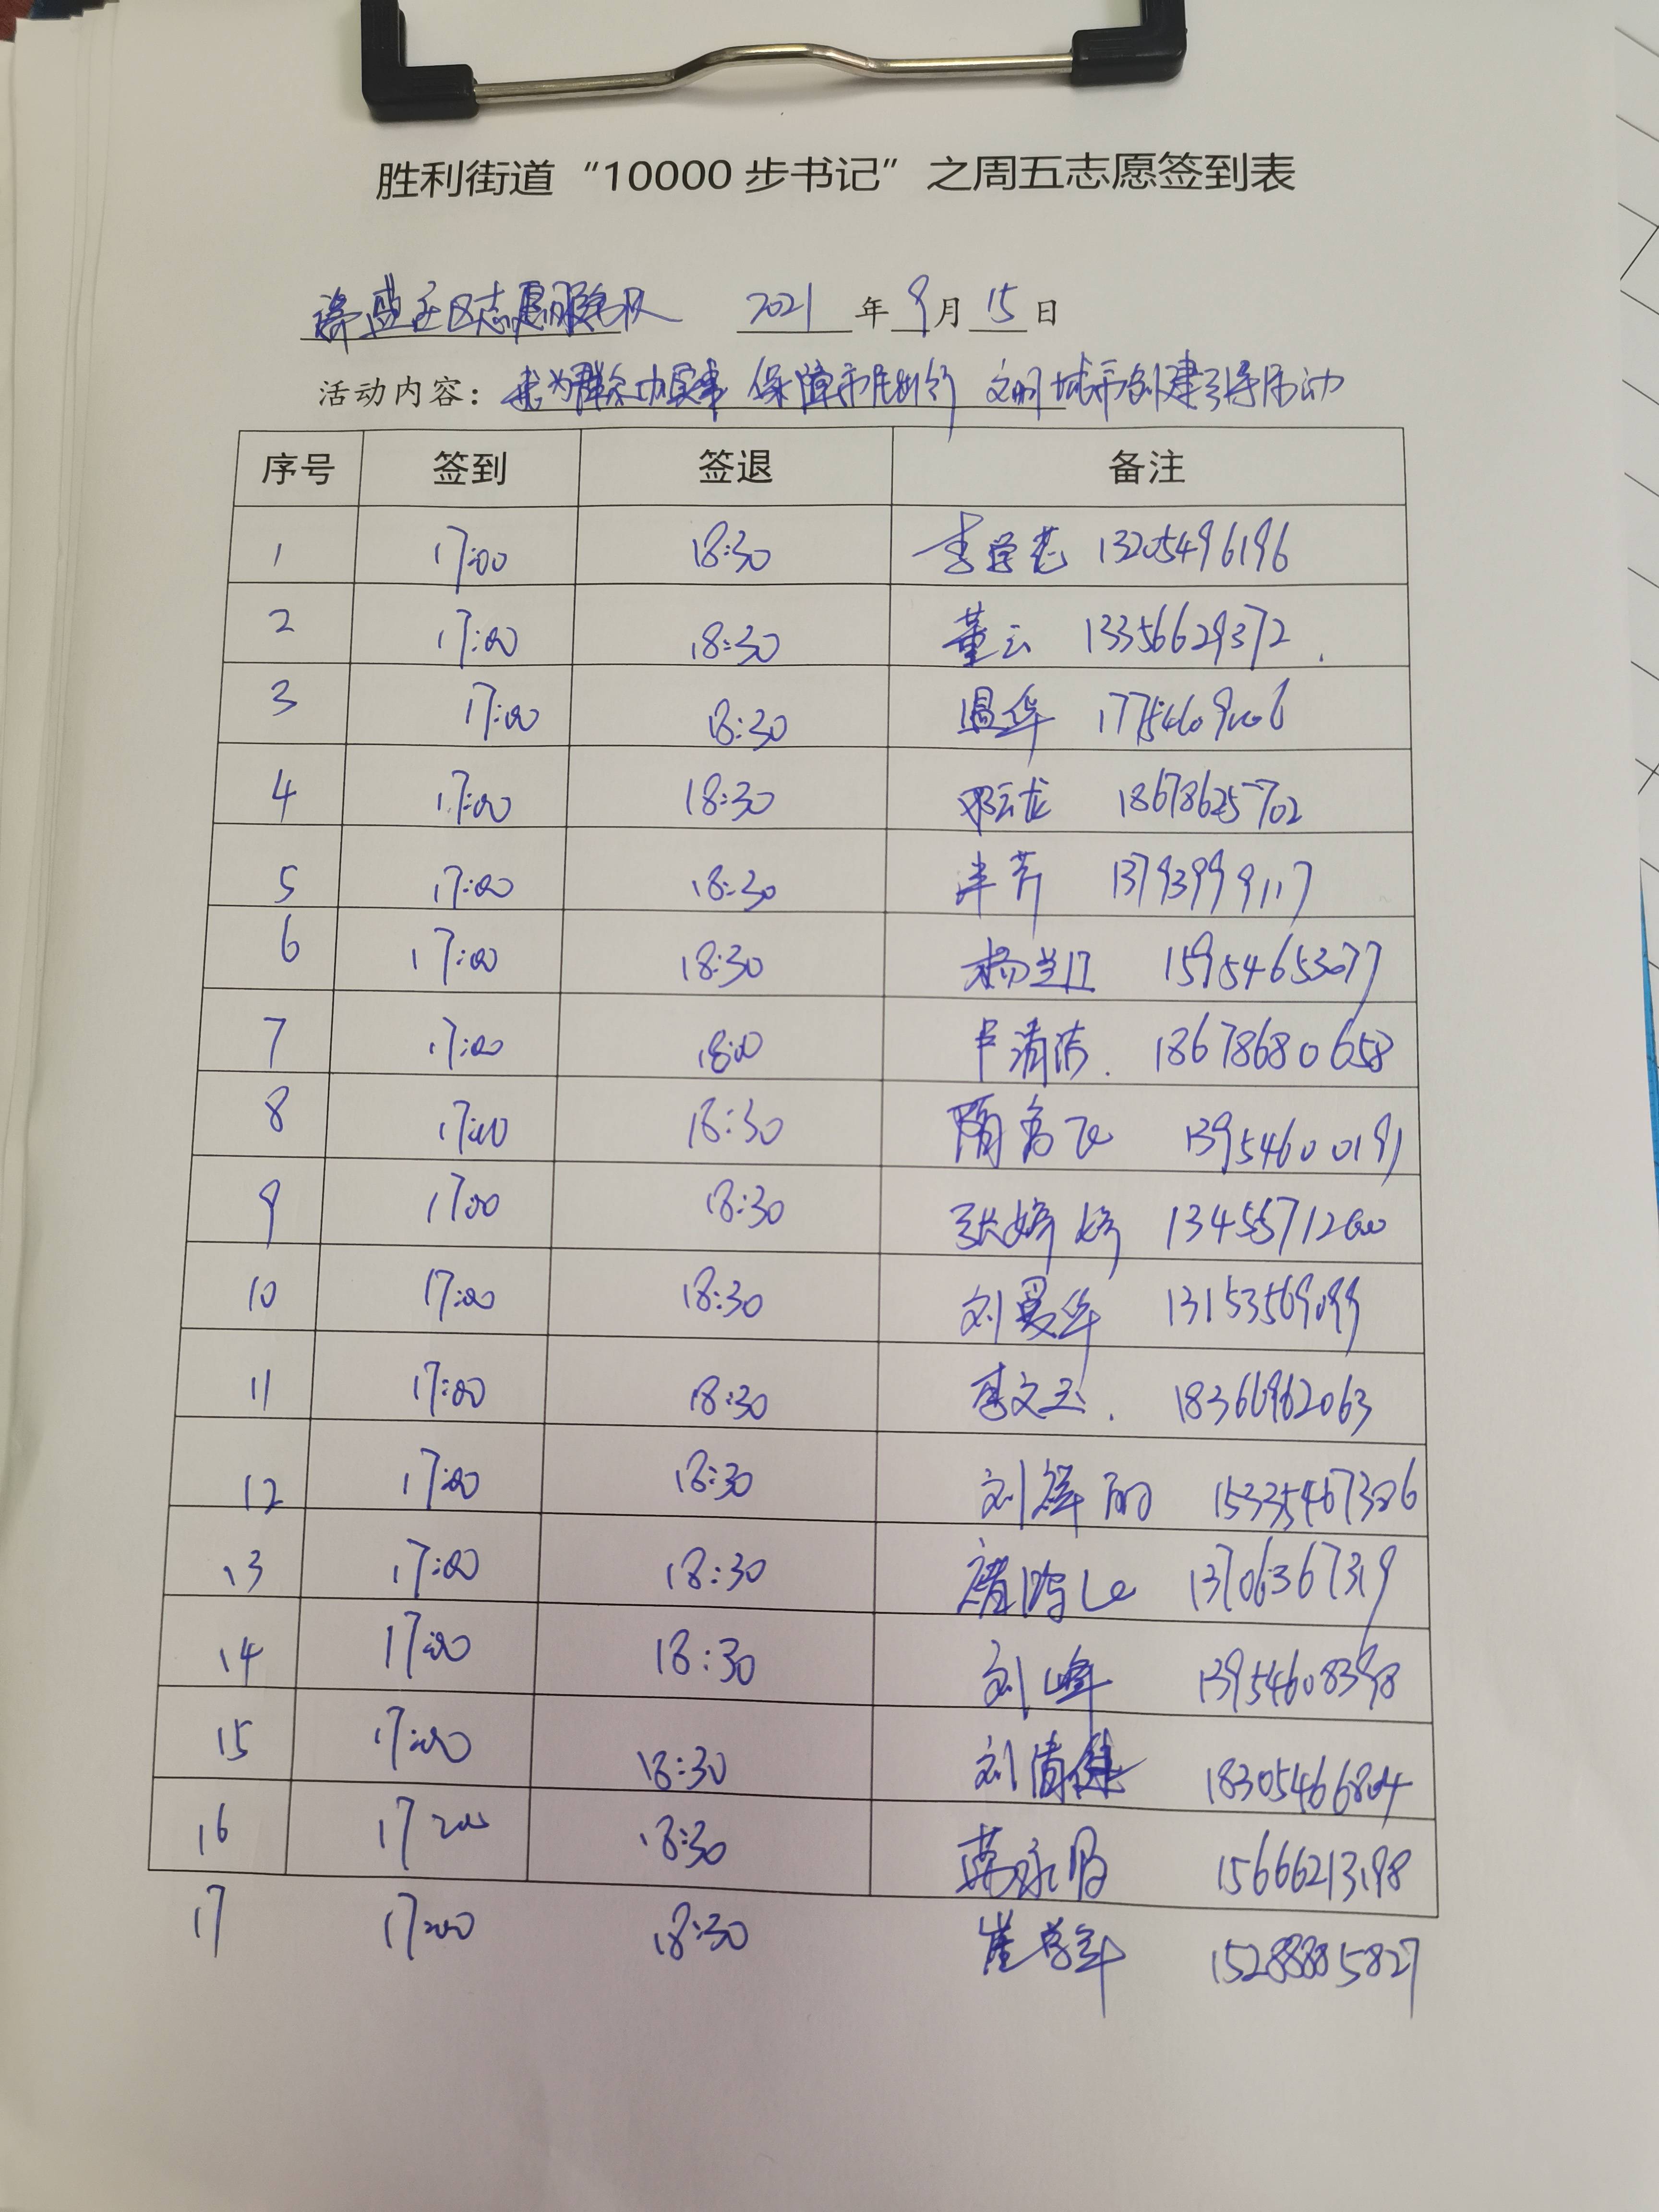 胜利街道“10000步书记”之周五志愿签到表
社区志愿服务队 2021年9月15日
活动内容：我为群众办实事 保障市民出行 文明城市创建引导活动
序号 签到 签退 备注
1 17:00 18:30 李学芝 13205496196
2 17:00 18:30 董云 13356629372
3 17:00 18:30 温华 17754609006
4 17:00 18:30 邓云龙 18678625702
5 17:00 18:30 芹 13793999117
6 17:00 18:30 杨兰江 15954653077
7 17:00 18:00 卢清洁 18678680658
8 17:00 18:30 隋高飞 13954600191
9 17:00 18:30 张婷婷 13455571200
10 17:00 18:30 刘夏华 13153569099
11 17:00 18:30 李文玉 18366962063
12 17:00 18:30 刘祥丽 15335467306
13 17:00 18:30 13706367319
14 17:00 18:30 刘峰 13954608398
15 17:00 18:30 刘清健 18305466804
16 17:00 18:30 15666213198
17 17:00 18:30 崔学军 15288885827